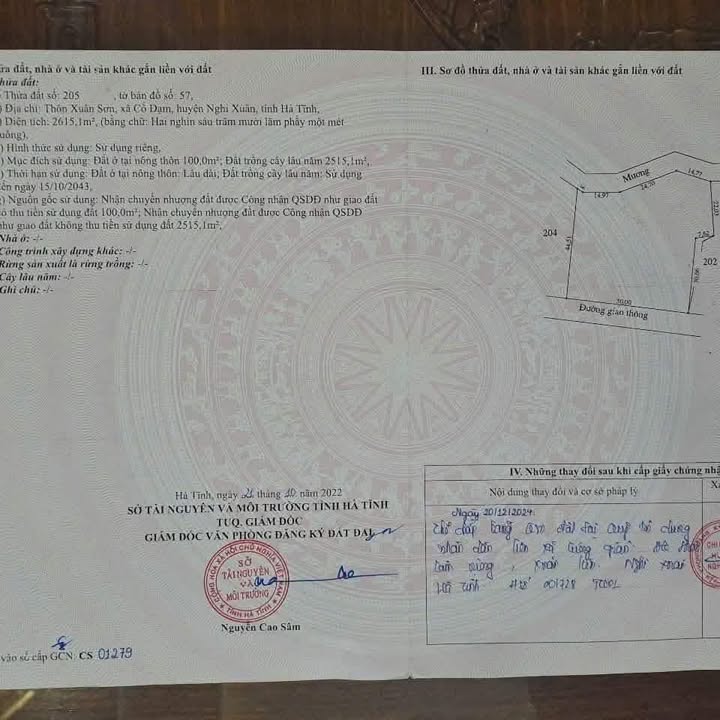 ửa đất, nhà ở và tài sản khác gắn liền với đất
hửa đất:
Thửa đất số: 205 , tờ bản đồ số: 57,
) Địa chỉ: Thôn Xuân Sơn, xã Cổ Đạm, huyện Nghi Xuân, tỉnh Hà Tĩnh,
) Diện tích: 2615,1m², (bằng chữ: Hai nghìn sáu trăm mười lăm phẩy một mét
uông),
) Hình thức sử dụng: Sử dụng riêng,
) Mục đích sử dụng: Đất ở tại nông thôn 100,0m²; Đất trồng cây lâu năm 2515,1m²,
) Thời hạn sử dụng: Đất ở tại nông thôn: Lâu dài; Đất trồng cây lâu năm: Sử dụng
ến ngày 15/10/2043,
) Nguồn gốc sử dụng: Nhận chuyển nhượng đất được Công nhận QSDĐ như giao đất
ó thu tiền sử dụng đất 100,0m²; Nhận chuyển nhượng đất được Công nhận QSDĐ
như giao đất không thu tiền sử dụng đất 2515,1m²,
Nhà ở: -/-
Công trình xây dựng khác: -/-
Rừng sản xuất là rừng trồng: -/-
Cây lâu năm: -/-
Ghi chú: -/-
Hà Tĩnh, ngày 21 tháng 10 năm 2022
SỞ TÀI NGUYÊN VÀ MÔI TRƯỜNG TỈNH HÀ TĨNH
TUQ. GIÁM ĐỐC
GIÁM ĐỐC VĂN PHÒNG ĐĂNG KÝ ĐẤT ĐAI
CỘNG HÒA XÃ HỘI CHỦ NGHĨA VIỆT NAM
SỞ
TÀI NGUYÊN
VÀ
MÔI TRƯỜNG
TỈNH HÀ TĨNH
Nguyễn Cao Sâm
vào sổ cấp GCN: CS 01279
III. Sơ đồ thửa đất, nhà ở và tài sản khác gắn liền với đất
Mương
14.97
24.70
14.77
204
44.51
7.82
202
30.00
Đường giao thông
IV. Những thay đổi sau khi cấp giấy chứng nhậ
Nội dung thay đổi và cơ sở pháp lý
Ngày 20/12/2024
Thế chấp bằng
nhân dân
Xuân
Hà Tĩnh